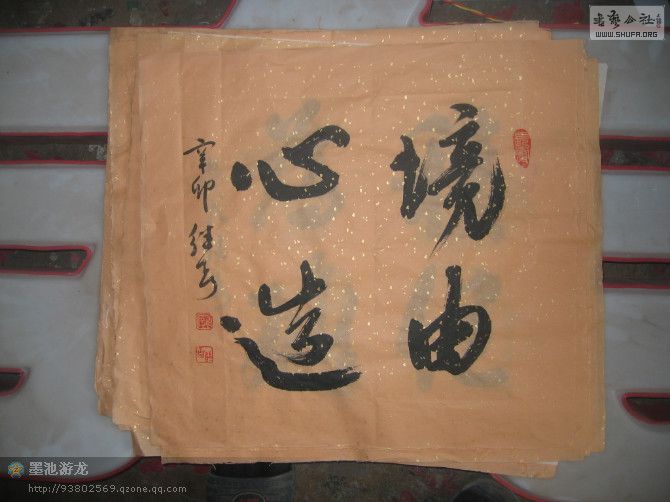 境由
心造
辛卯
书艺公社
WWW.SHUFA.ORG
墨池游龙
http://93802569.qzone.qq.com